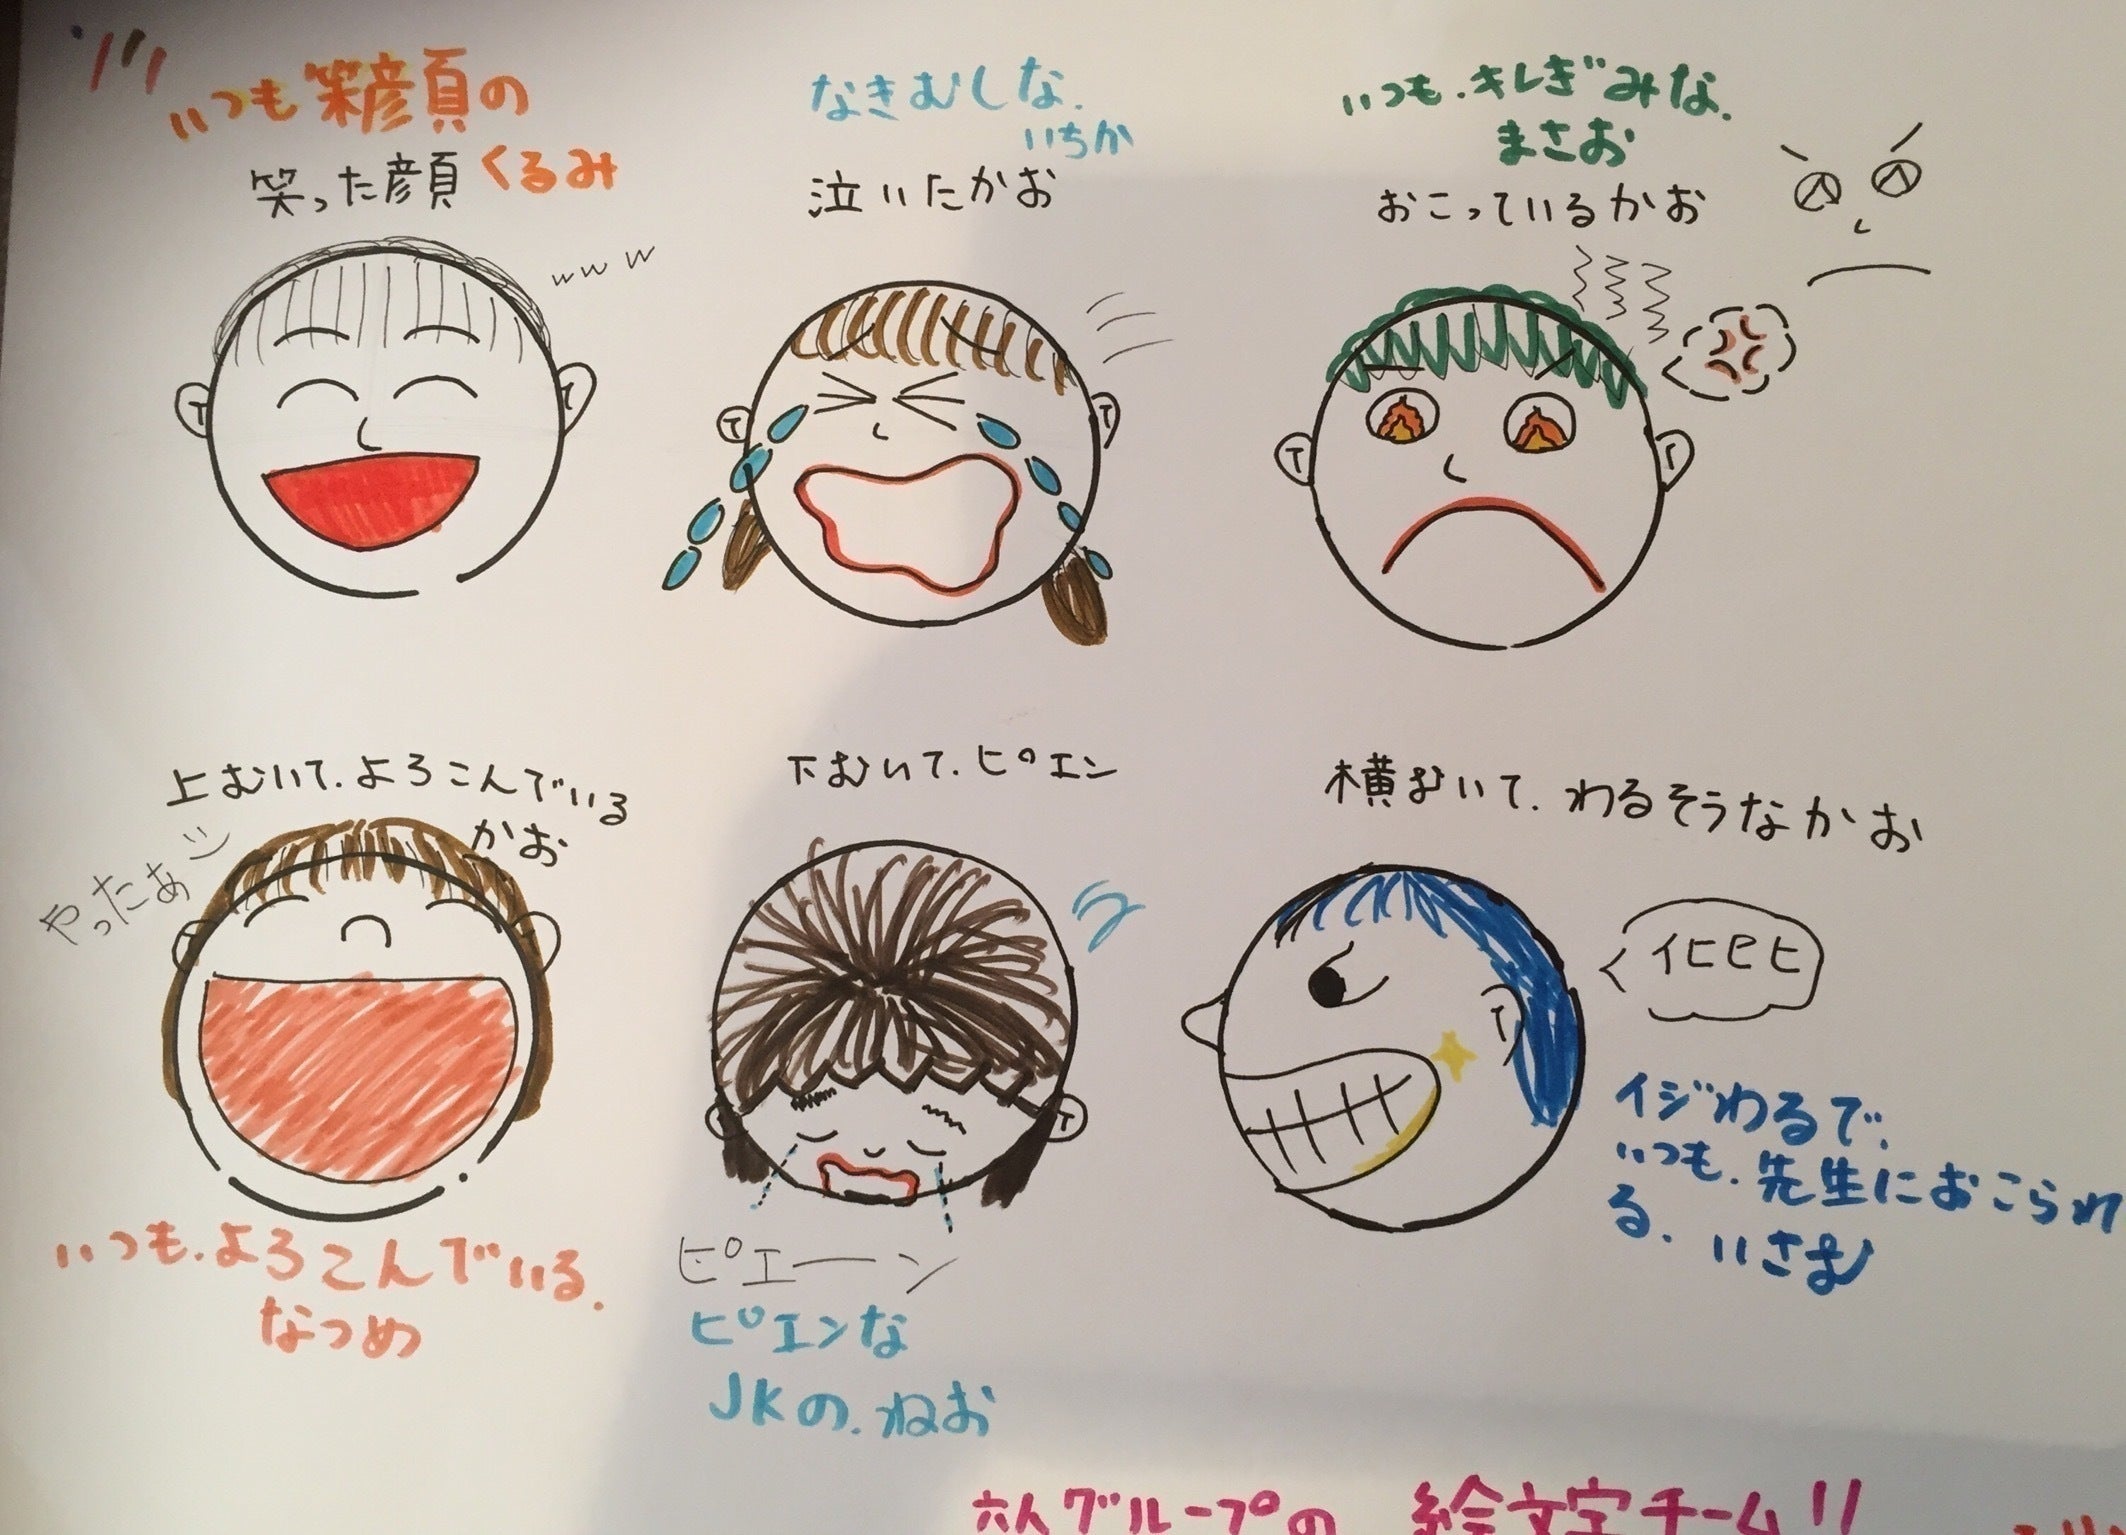 いつも笑顔の
くるみ
笑った顔
www
なきむしな.
いちか
泣いたかお
いつも.キレぎみな.
まさお
おこっているかお
上むいて.よろこんでいる
かお
やったぁッ
いつも.よろこんでいる.
なつめ
下むいて.ピエン
ピエーン
ピエンな
JKの.ねお
横むいて.わるそうなかお
イヒヒヒ
イジわるで.
いつも.先生におこられ
る.いさむ
六人グループの 絵文字チーム!!